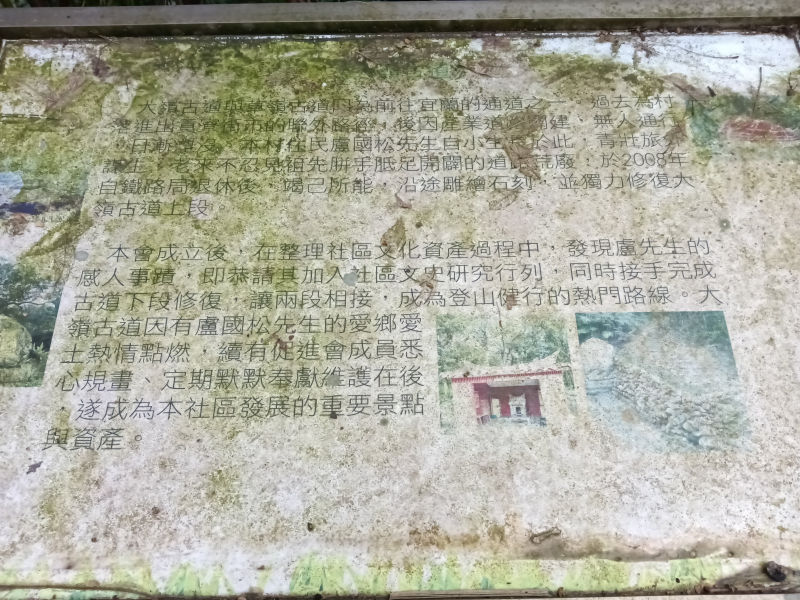 大領古道與草領古道同為前往宜蘭的通道之一，過去為村
進出貢寮街市的聯外路徑，後因產業道路闢建，無人通行
，日漸淹沒。本村住民盧國松先生自小生長於此，青壯旅外
謀生，老來不忍見祖先胼手胝足開闢的道路荒廢，於2008年
自鐵路局退休後，竭己所能，沿途雕繪石刻，並獨力修復大
領古道上段。
本會成立後，在整理社區文化資產過程中，發現盧先生的
感人事蹟，即恭請其加入社區文史研究行列，同時接手完成
古道下段修復，讓兩段相接，成為登山健行的熱門路線。大
領古道因有盧國松先生的愛鄉愛
土熱情點燃，續有促進會成員悉
心規畫、定期默默奉獻維護在後
，遂成為本社區發展的重要景點
與資產。